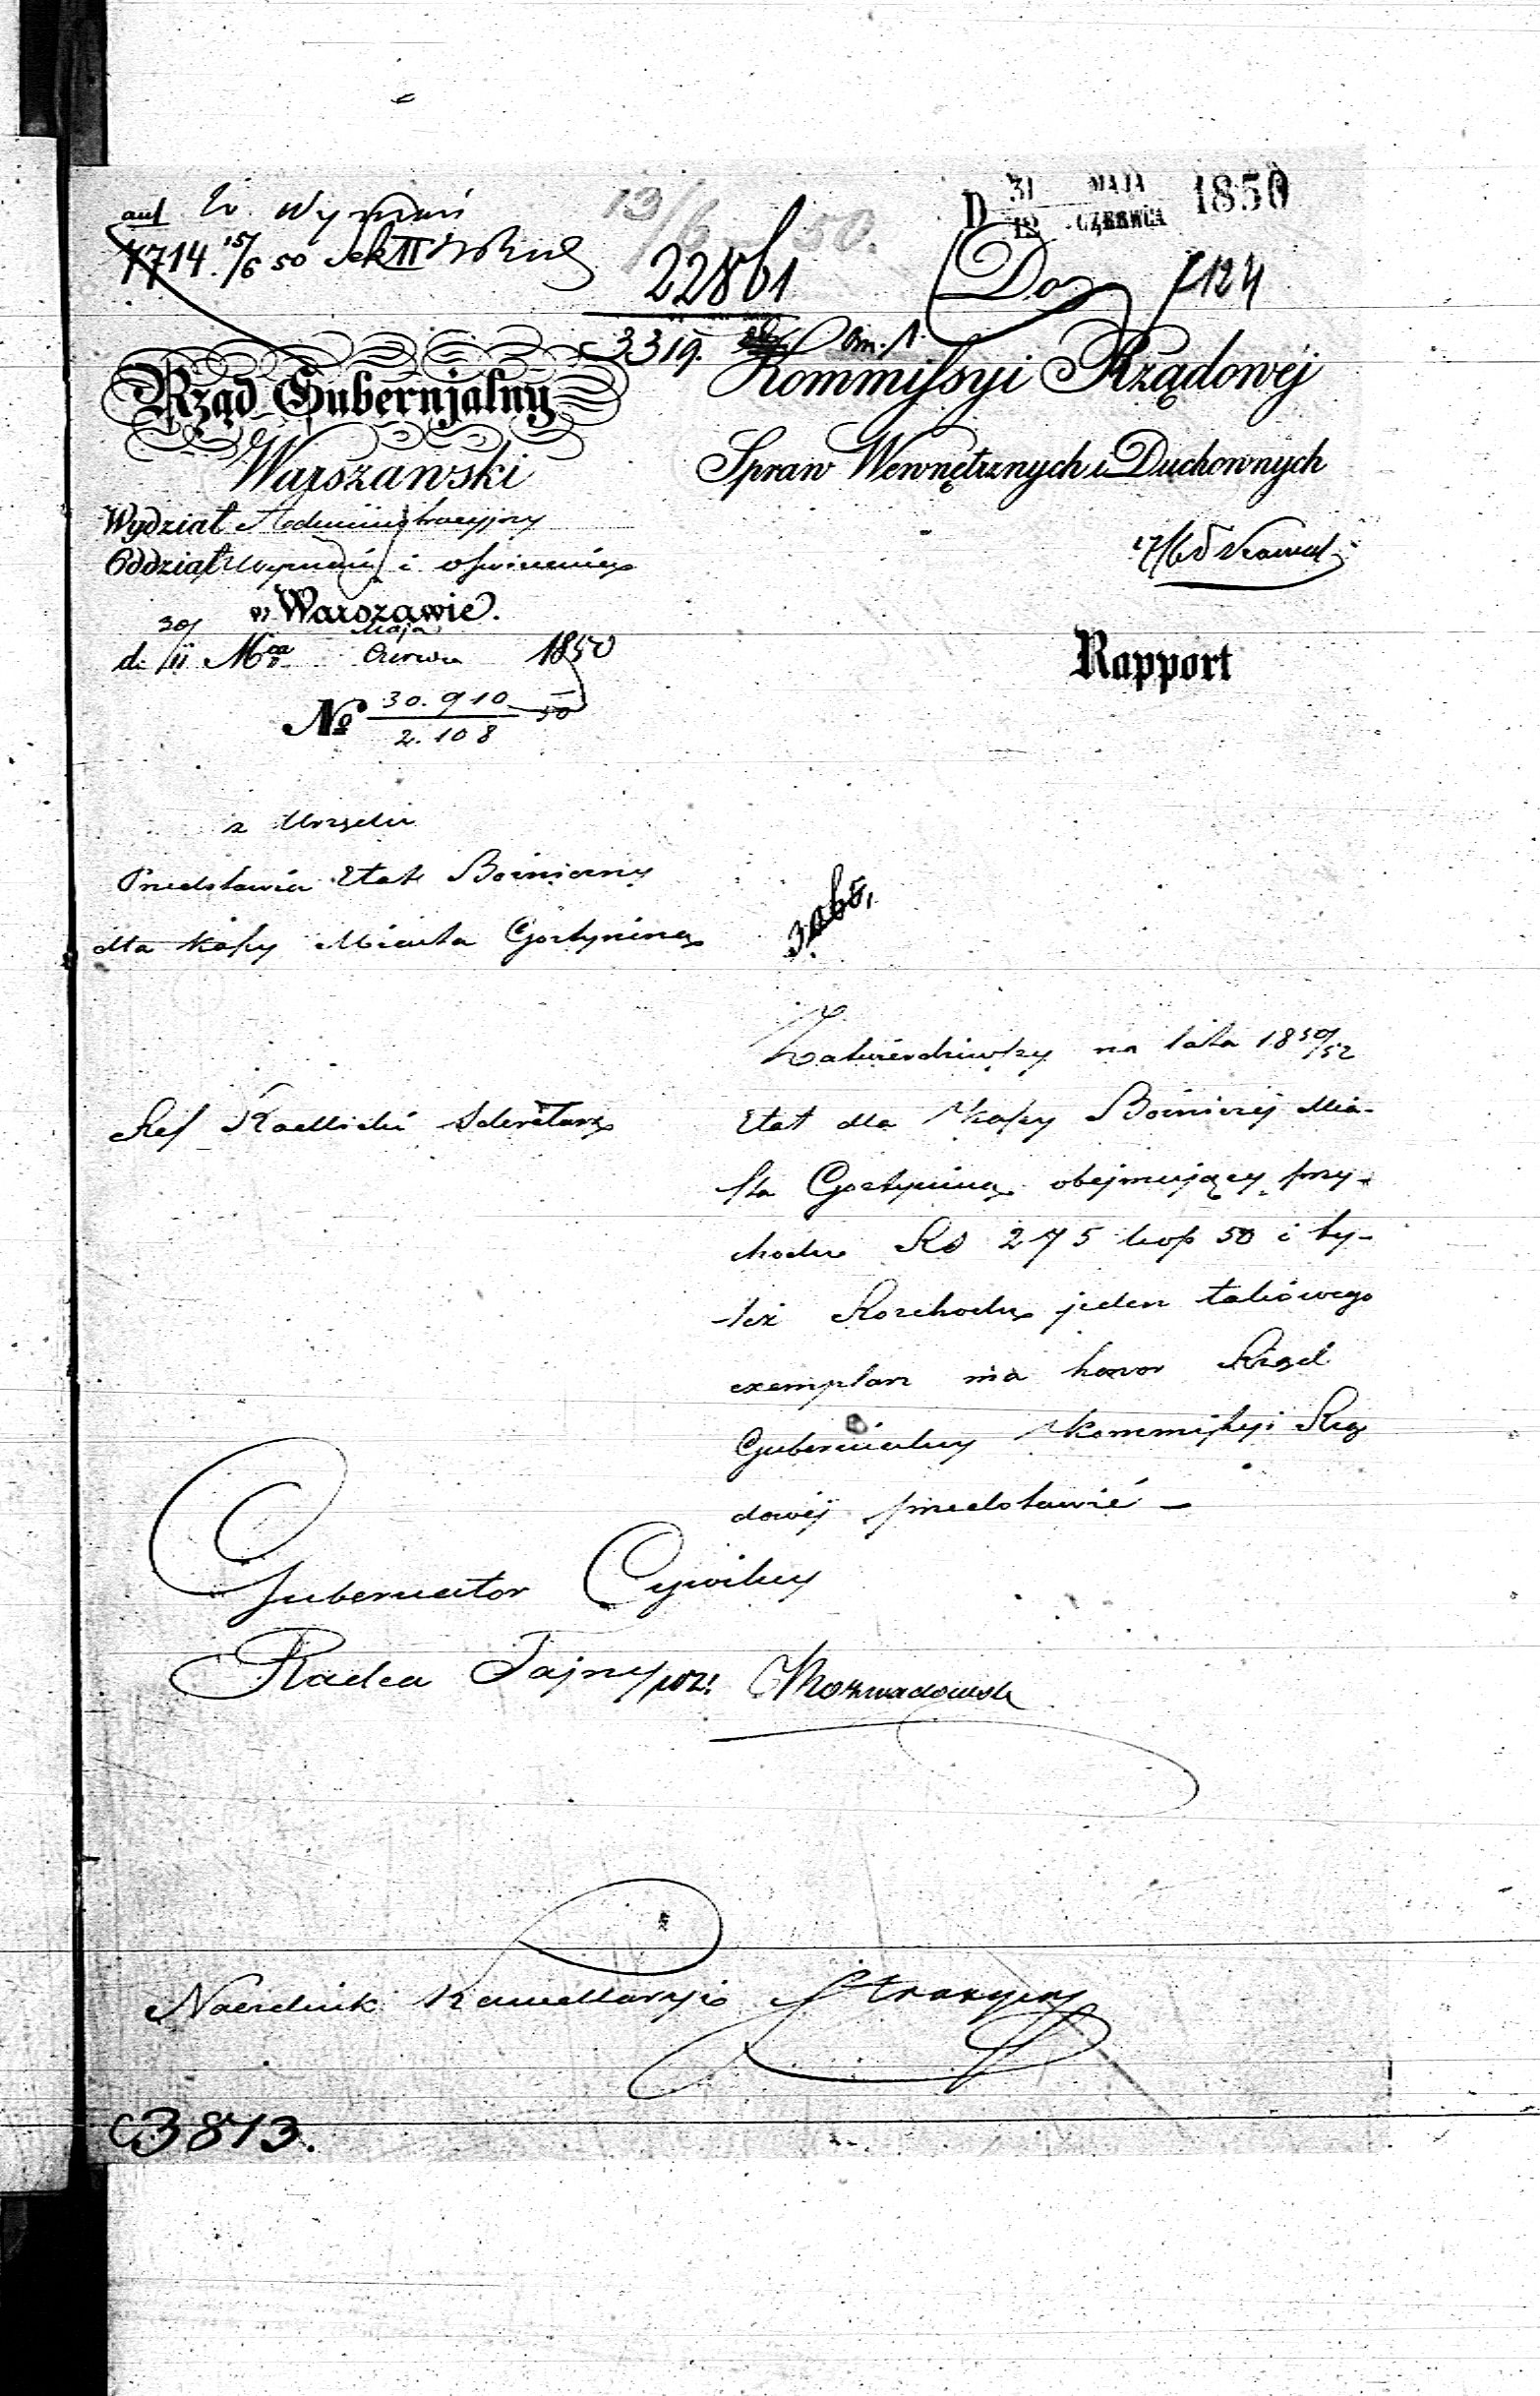 W. Wyznań
7714. 15/6 50 Sek II
13/6 50.
22861
3319.
D 31 MAJA 1850
12 CZERWCA
Do 7124
Rząd Gubernjalny
Warszawski
Wydział Administracyjny
Oddział Wyznań i oświecenia
w Warszawie.
d. 30/11 Mca Maja Czerwca 1850
No 30.910/2.108 50
Kommissyi Rządowéj
Spraw Wewnętrznych i Duchownych
17/6
Rapport
z Urzędu
Przedstawia Etat Bożniczny
dla Kassy Miasta Gostynina
Sekretarz
Zatwierdziwszy na lata 1850/52
Etat dla Kassy Bożniczéj Mia-
sta Gostynina obejmujący przy-
chodu Rs 275 kop 50 i ty-
leż Rozchodu jeden takowego
exemplarz ma honor Rząd
Gubernialny Kommissyi Rzą
dowéj przedstawić –
Gubernator Cywilny
Radca Tajny
Naczelnik Kancellaryi
3873.